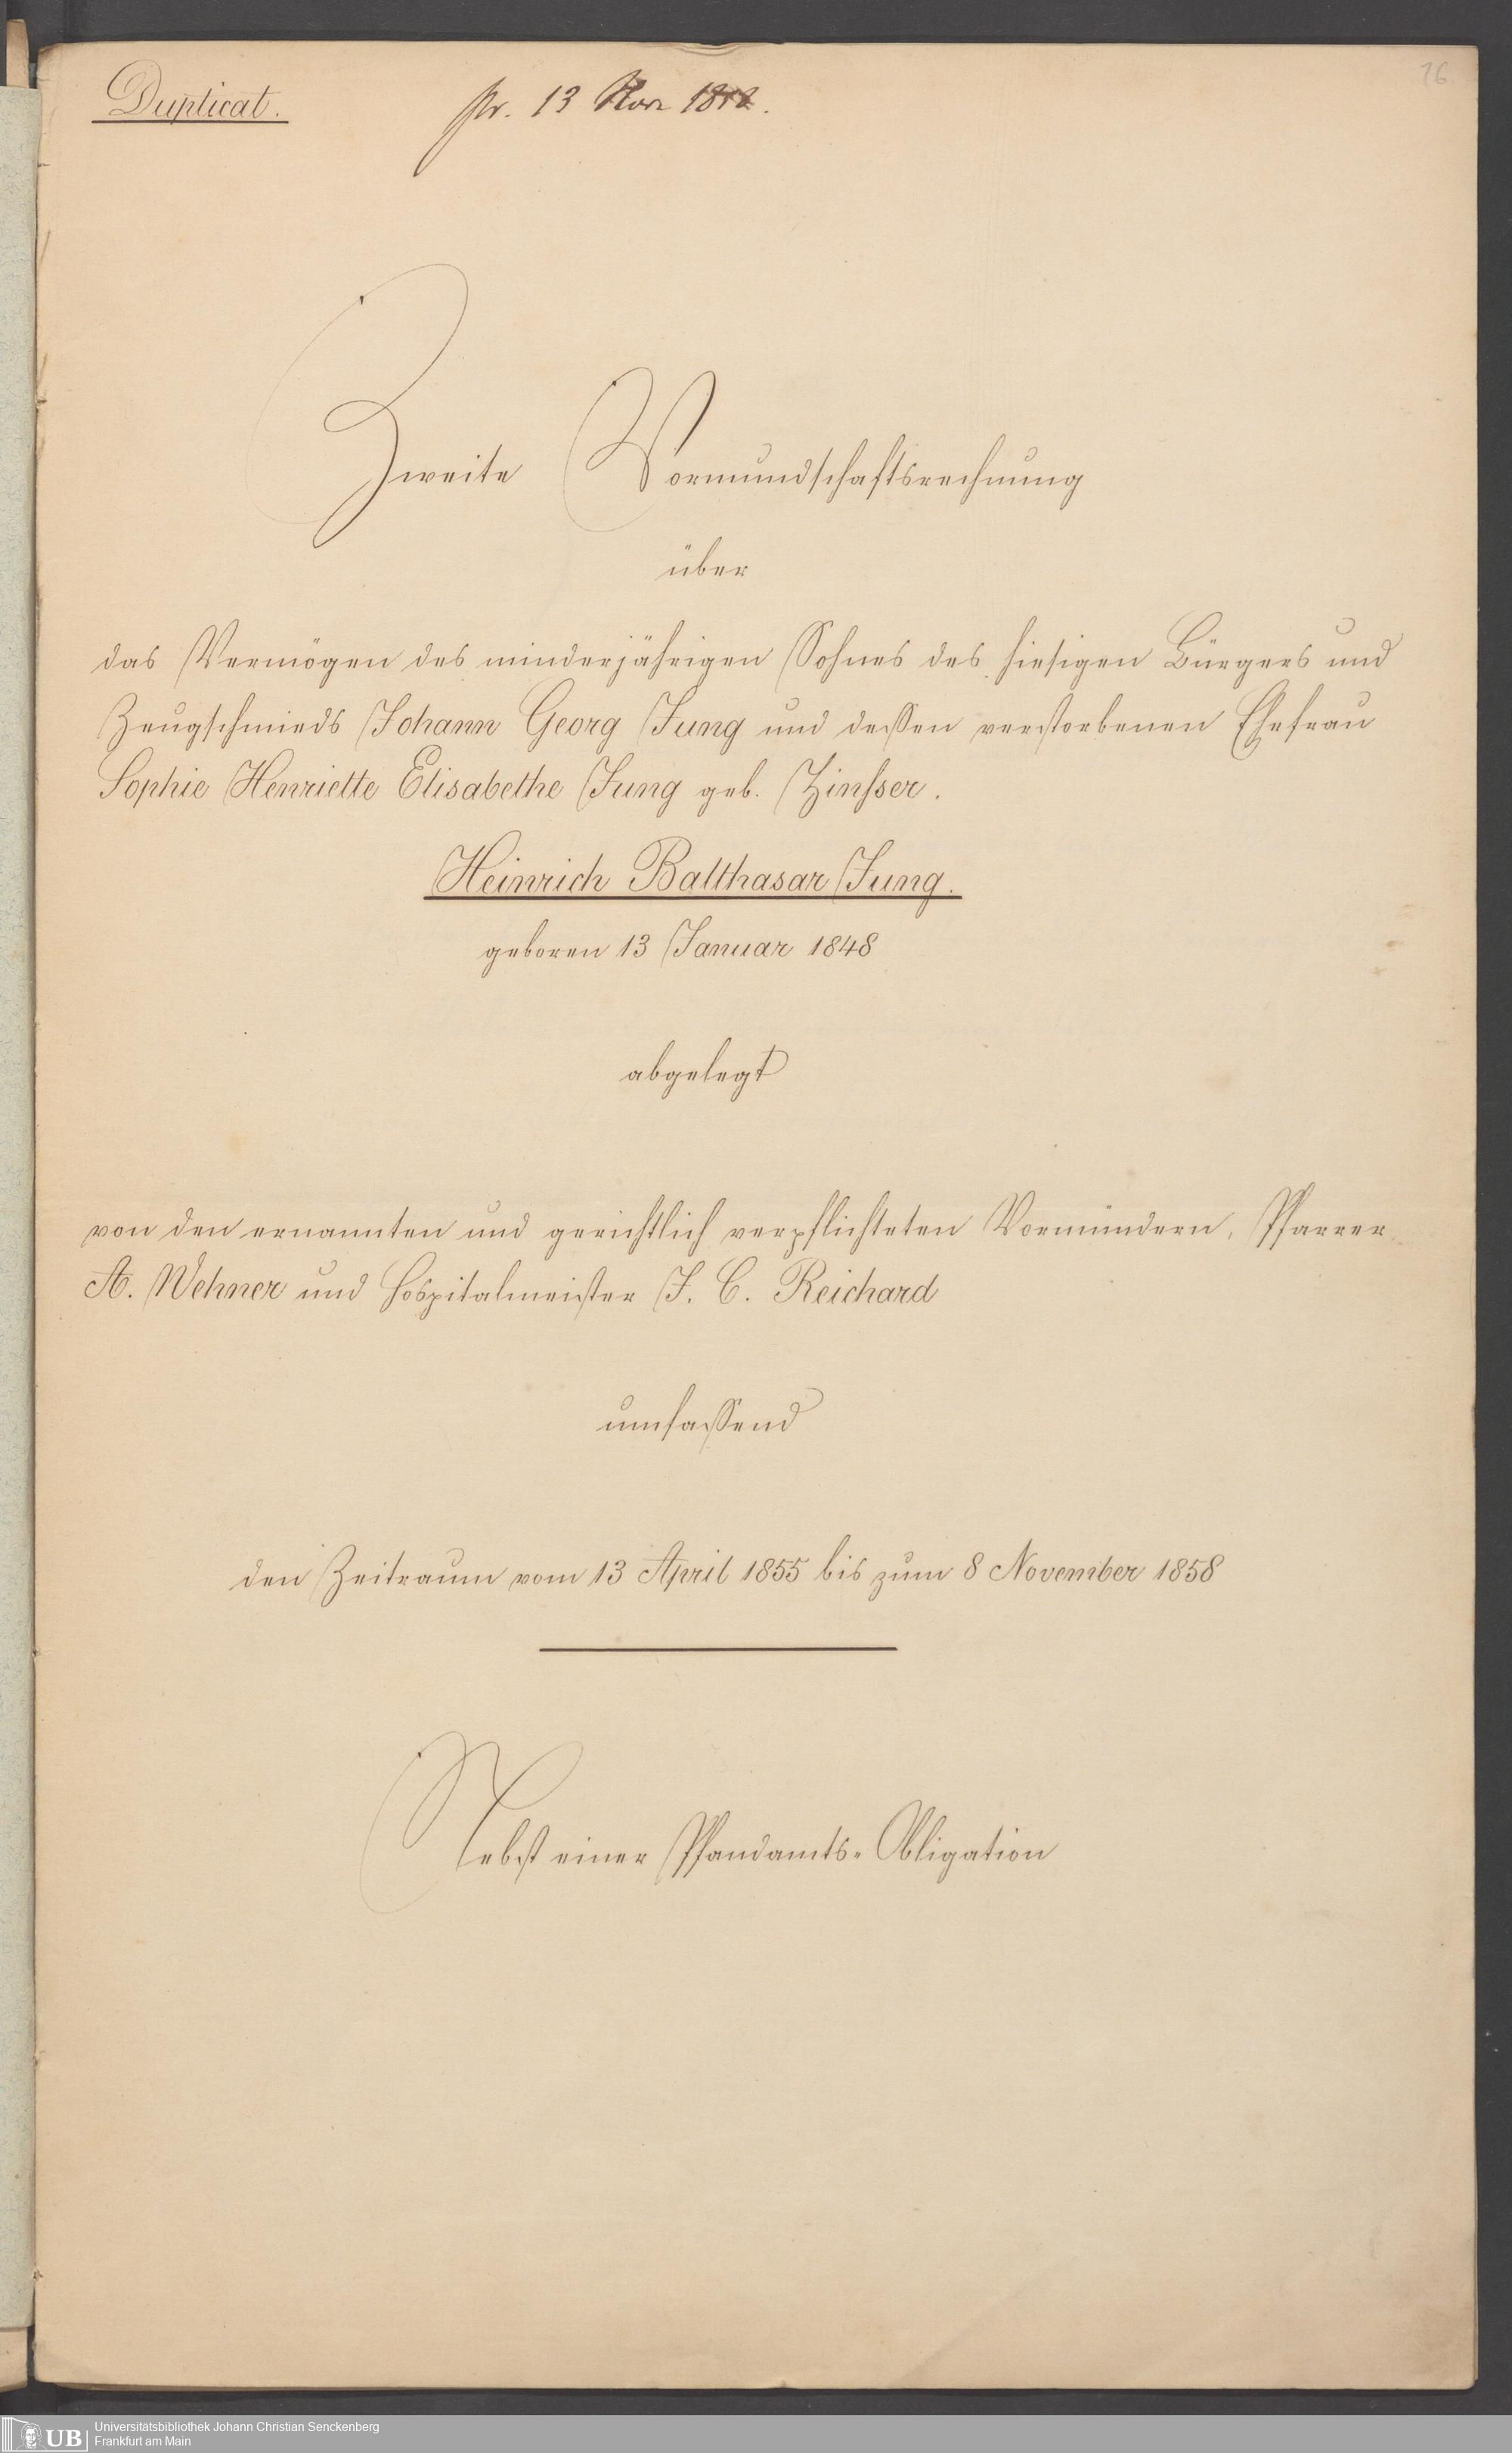 Duplicat.
pr. 13 Nov 1858.
16
Zweite Vormundschaftsrechnung
über
das Vermögen des minderjährigen Sohnes des hiesigen Bürgers und
Zeugschmieds Johann Georg Jung und dessen verstorbenen Ehefrau
Sophie Henriette Elisabethe Jung geb. Zinsser.
Heinrich Balthasar Jung.
geboren 13 Januar 1848
abgelegt
von den ernannten und gerichtlich verpflichteten Vormündern, Pfarrer
A. Wehner und Hospitalmeister J. C. Reichard
umfassend
den Zeitraum vom 13 April 1855 bis zum 8 November 1858
Nebst einer Pfandamts-Obligation
UB
Universitätsbibliothek Johann Christian Senckenberg
Frankfurt am Main